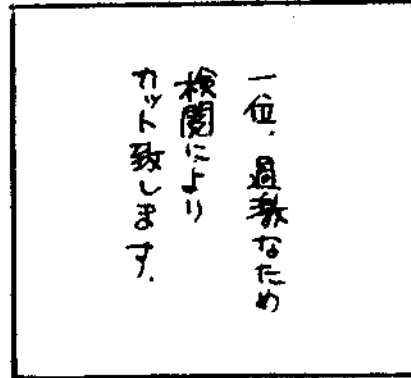 一位、過激なため
検閲により
カット致します.